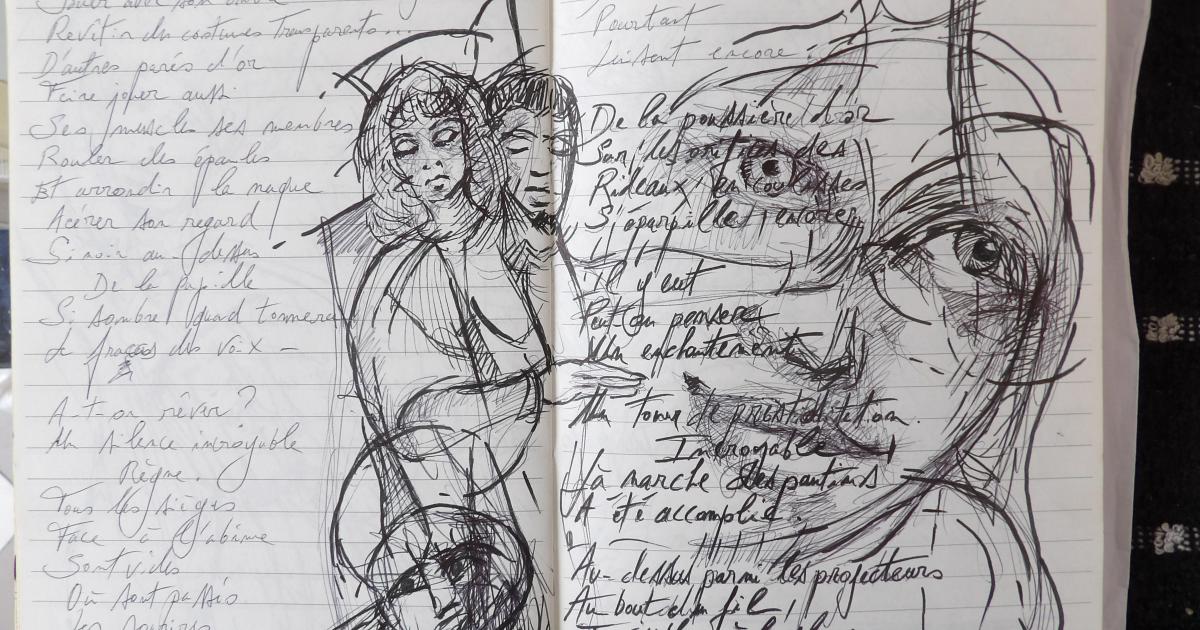 Revêtir des costumes transparents...
D'autres parés d'or
Faire jouer aussi
Ses muscles ses membres
Rouler des épaules
Et arrondir la nuque
Acérer son regard
Si noir au-dessus
De la pupille
Si sombre quand tonnera
Le fracas des voix –
A-t-on rêver ?
Un silence incroyable
Règne.
Tous les sièges
Face à l'abîme
Sont vides
Où sont passés
Pourtant
Luisent encore
De la poussière d'or
Sur les des
Rideaux en coulisses
S'éparpille encore
Il y eut
Peut on penser
Un enchantement
Un tour de prestidigitation.
Incroyable
La marche des pantins
A été accomplie.
Au-dessus parmi les projecteurs
Au bout du fil